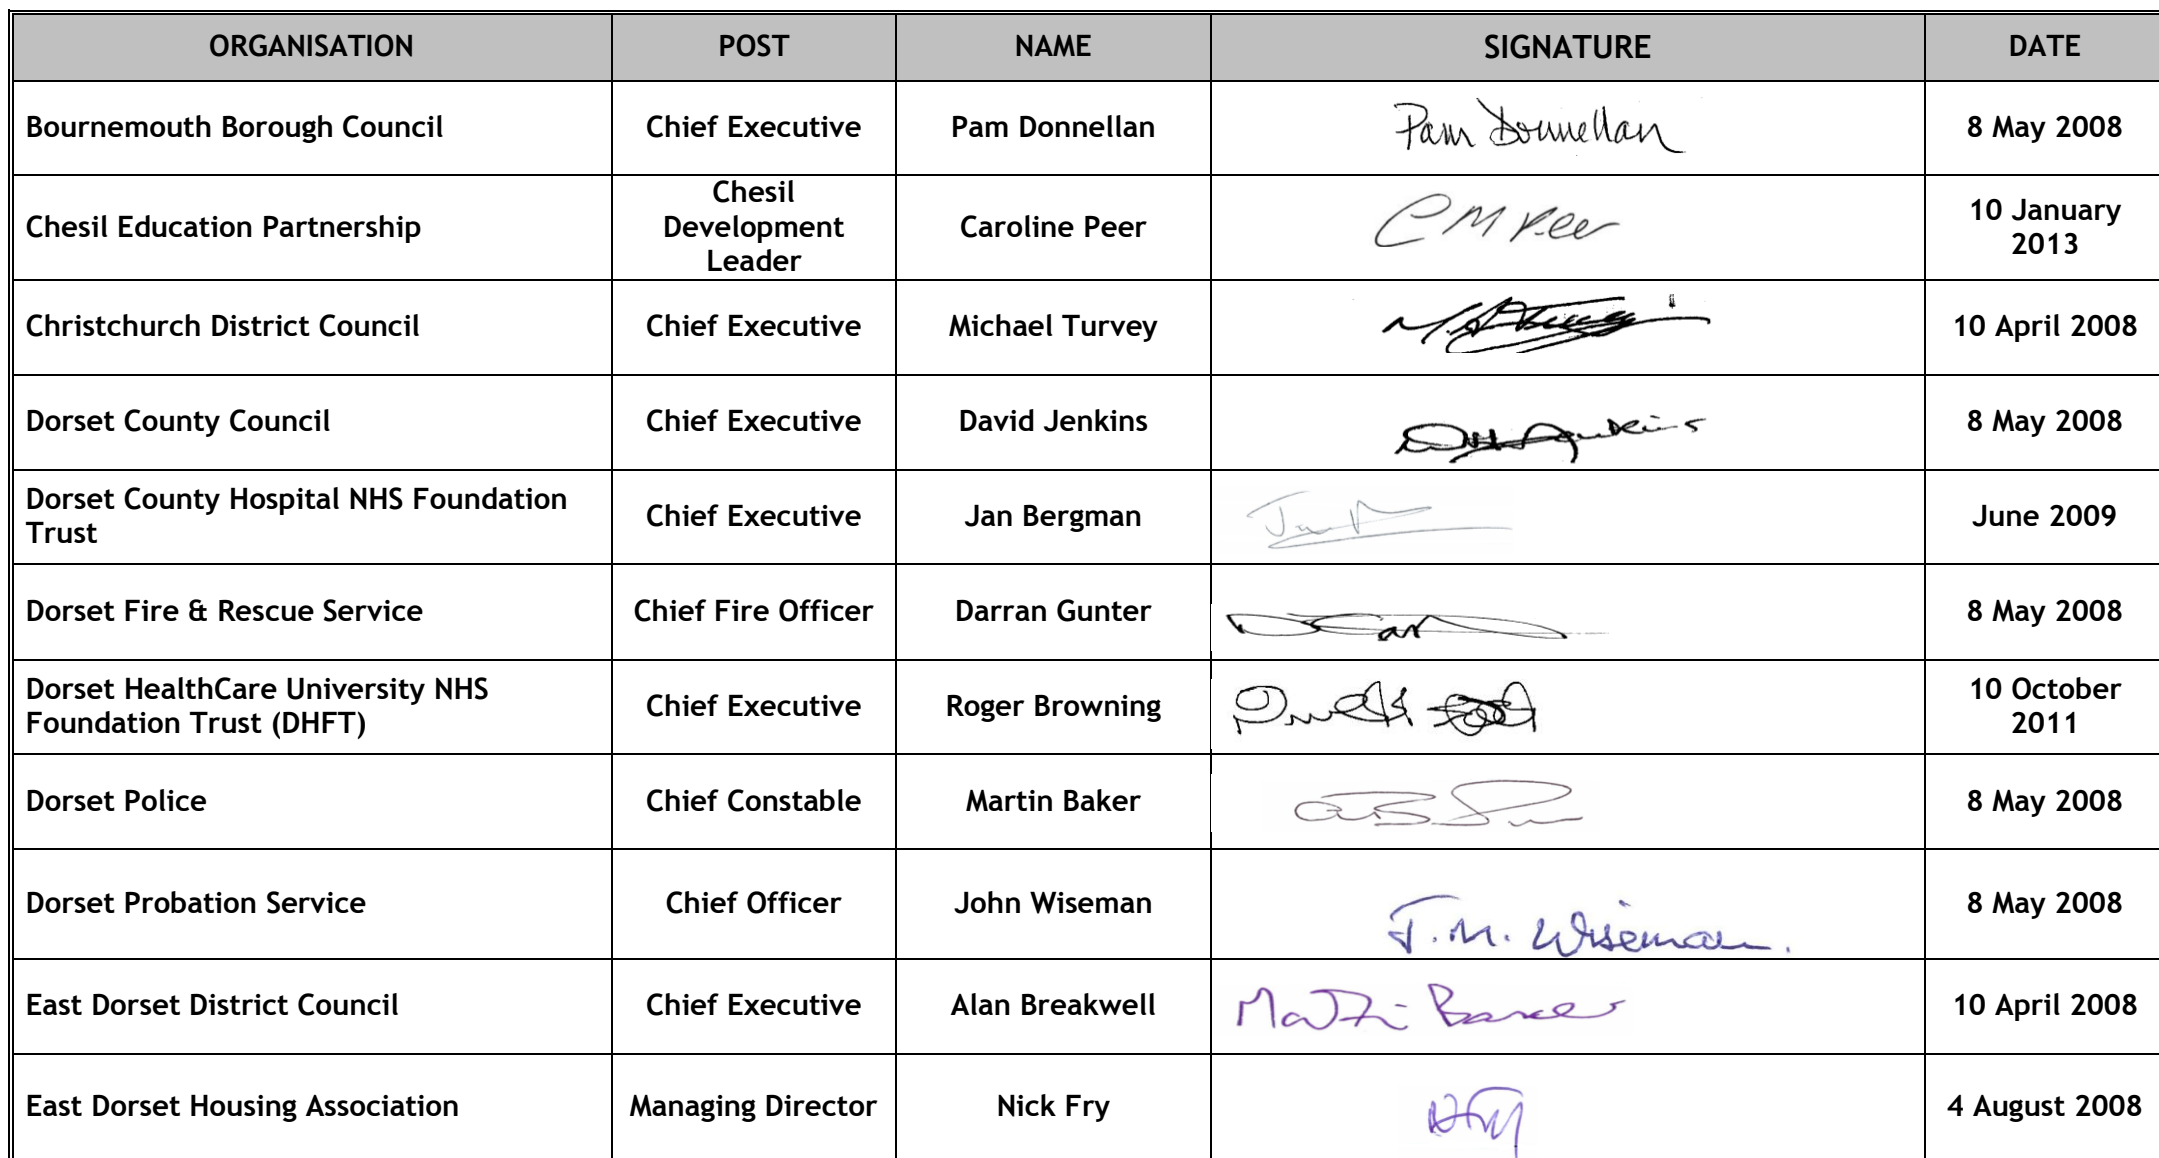 ORGANISATION POST NAME SIGNATURE DATE
Bournemouth Borough Council Chief Executive Pam Donnellan Pam Donnellan 8 May 2008
Chesil Education Partnership Chesil Development Leader Caroline Peer CM Peer 10 January 2013
Christchurch District Council Chief Executive Michael Turvey 10 April 2008
Dorset County Council Chief Executive David Jenkins 8 May 2008
Dorset County Hospital NHS Foundation Trust Chief Executive Jan Bergman June 2009
Dorset Fire & Rescue Service Chief Fire Officer Darran Gunter 8 May 2008
Dorset HealthCare University NHS Foundation Trust (DHFT) Chief Executive Roger Browning 10 October 2011
Dorset Police Chief Constable Martin Baker 8 May 2008
Dorset Probation Service Chief Officer John Wiseman J. M. Wiseman. 8 May 2008
East Dorset District Council Chief Executive Alan Breakwell Martin Baker 10 April 2008
East Dorset Housing Association Managing Director Nick Fry NFry 4 August 2008